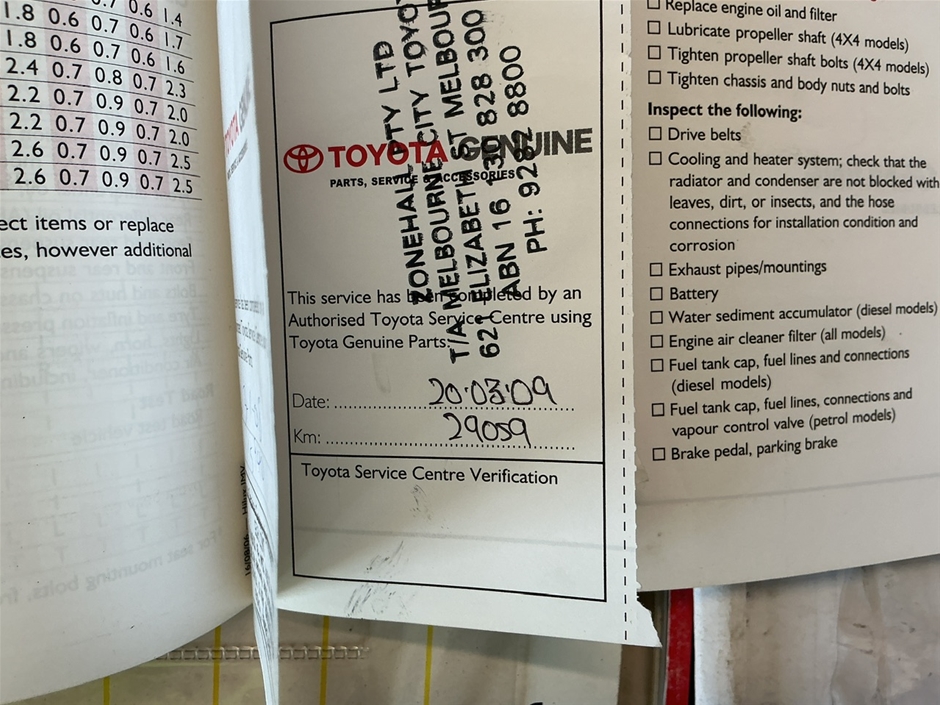 0.7 0.6 1.4
1.8 0.6 0.7 0.6 1.7
1.8 0.6 0.7 0.6 1.6
2.4 0.7 0.8 0.7 2.3
2.2 0.7 0.9 0.7 2.0
2.2 0.7 0.9 0.7 2.0
2.6 0.7 0.9 0.7 2.5
2.6 0.7 0.9 0.7 2.5
ect items or replace
es, however additional
ZONEHALL PTY LTD
T/A MELBOURNE CITY TOYO
621 ELIZABETH ST MELBOUR
ABN 16 130 828 300
PH: 9282 8800
TOYOTA GENUINE
PARTS, SERVICE & ACCESSORIES
This service has been completed by an
Authorised Toyota Service Centre using
Toyota Genuine Parts:
Date: 20.03.09
Km: 29059
Toyota Service Centre Verification
Replace engine oil and filter
Lubricate propeller shaft (4X4 models)
Tighten propeller shaft bolts (4X4 models)
Tighten chassis and body nuts and bolts
Inspect the following:
Drive belts
Cooling and heater system; check that the
radiator and condenser are not blocked with
leaves, dirt, or insects, and the hose
connections for installation condition and
corrosion
Exhaust pipes/mountings
Battery
Water sediment accumulator (diesel models)
Engine air cleaner filter (all models)
Fuel tank cap, fuel lines and connections
(diesel models)
Fuel tank cap, fuel lines, connections and
vapour control valve (petrol models)
Brake pedal, parking brake